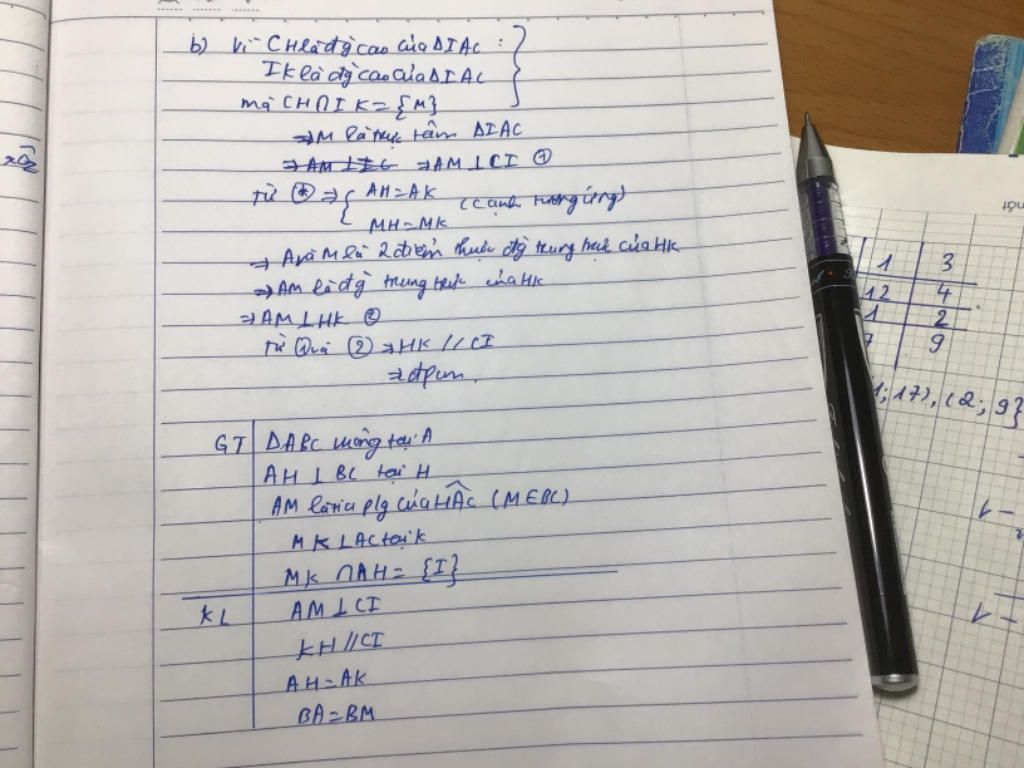 b) Vì CH là đg cao của ΔIAC :
IK là đg cao của ΔIAC
mà CH∩IK = {M}
⇒ M là trực tâm ΔIAC
⇒ AM ⊥ IC ⇒ AM ⊥ CI ①
Từ (*) ⇒ { AH = AK (cạnh tương ứng)
MH = MK
⇒ A và M là 2 điểm thuộc đg trung trực của HK
⇒ AM là đg trung trực của HK
⇒ AM ⊥ HK ②
Từ ① và ② ⇒ HK // CI
⇒ đpcm.
GT ΔABC vuông tại A
AH ⊥ BC tại H
AM là tia p/g của HÂC (M ∈ BC)
MK ⊥ AC tại K
MK ∩ AH = {I}
KL AM ⊥ CI
KH // CI
AH = AK
BA = BM
1 3
12 4
1 2
7 9
1; 17), (2; 9}